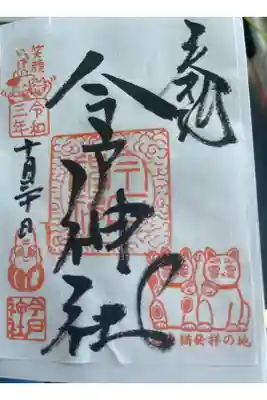 奉拝
今戸神社
笑顔
いっぱい
令和
三年
十月三十日
今戸
神社
招猫発祥の地